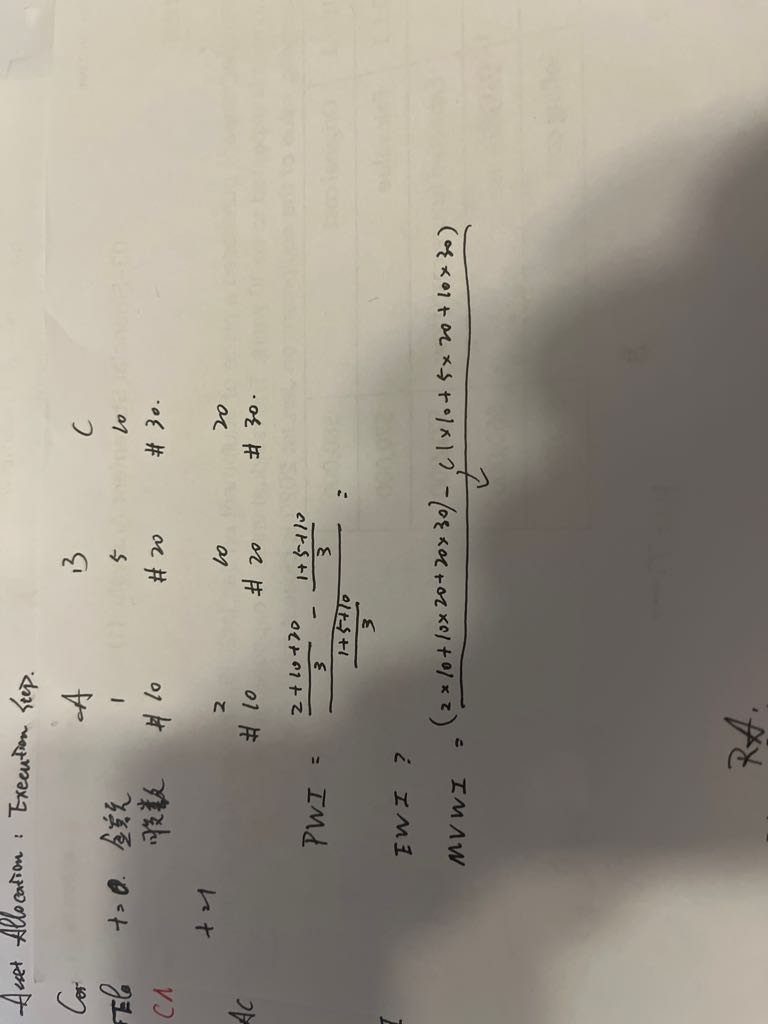 Asset Allocation : Execution Step.
A B C
t=0. 金額 1 5 10
股数 #10 #20 #30.
t=1 2 10 20
#10 #20 #30.
PWI = \frac{\frac{2+10+20}{3} - \frac{1+5+10}{3}}{\frac{1+5+10}{3}} =
EWI ?
MVWI = (2×10+10×20+20×30) - (1×10+5×20+10×30)
Cos
C1
AC
RA.